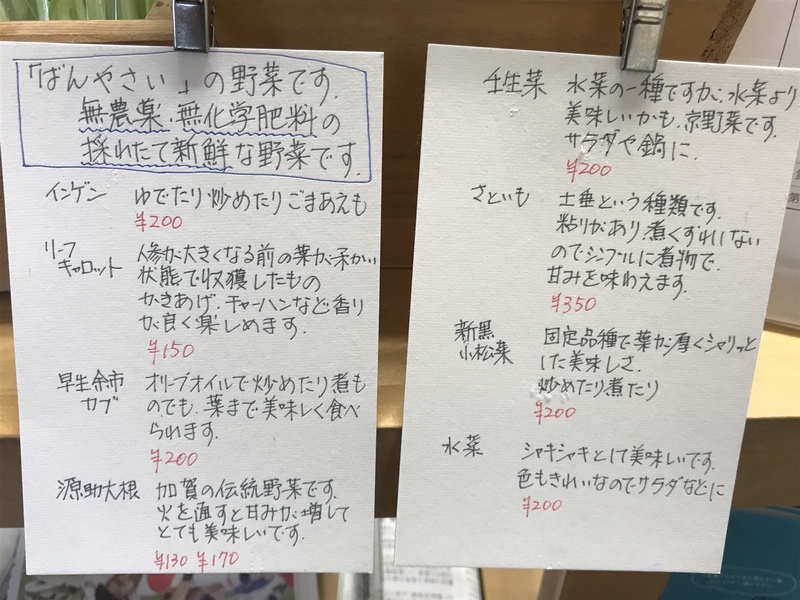 「ばんやさい」の野菜です.
無農薬.無化学肥料の
採れたて新鮮な野菜です.
インゲン
ゆでたり炒めたりごまあえも
¥200
リーフ
キャロット
人参が大きくなる前の葉が柔かい
状態で収獲したもの
かきあげ.チャーハンなど香り
が良く楽しめます.
¥150
早生余市
カブ
オリーブオイルで炒めたり煮も
のでも.葉まで美味しく食べ
られます.
¥200
源助大根
加賀の伝統野菜です.
火を通すと甘みが増して
とても美味しいです.
¥130 ¥170
壬生菜
水菜の一種ですが、水菜より
美味しいかも.京野菜です.
サラダや鍋に.
¥200
さといも
土垂という種類です.
粘りがあり.煮くずれしない
のでシンプルに煮物で.
甘みを味わえます.
¥350
新黒
小松菜
固定品種で葉が厚くシャリッと
した美味しさ.
炒めたり煮たり
¥200
水菜
シャキシャキとして美味しいです.
色もきれいなのでサラダなどに
¥200